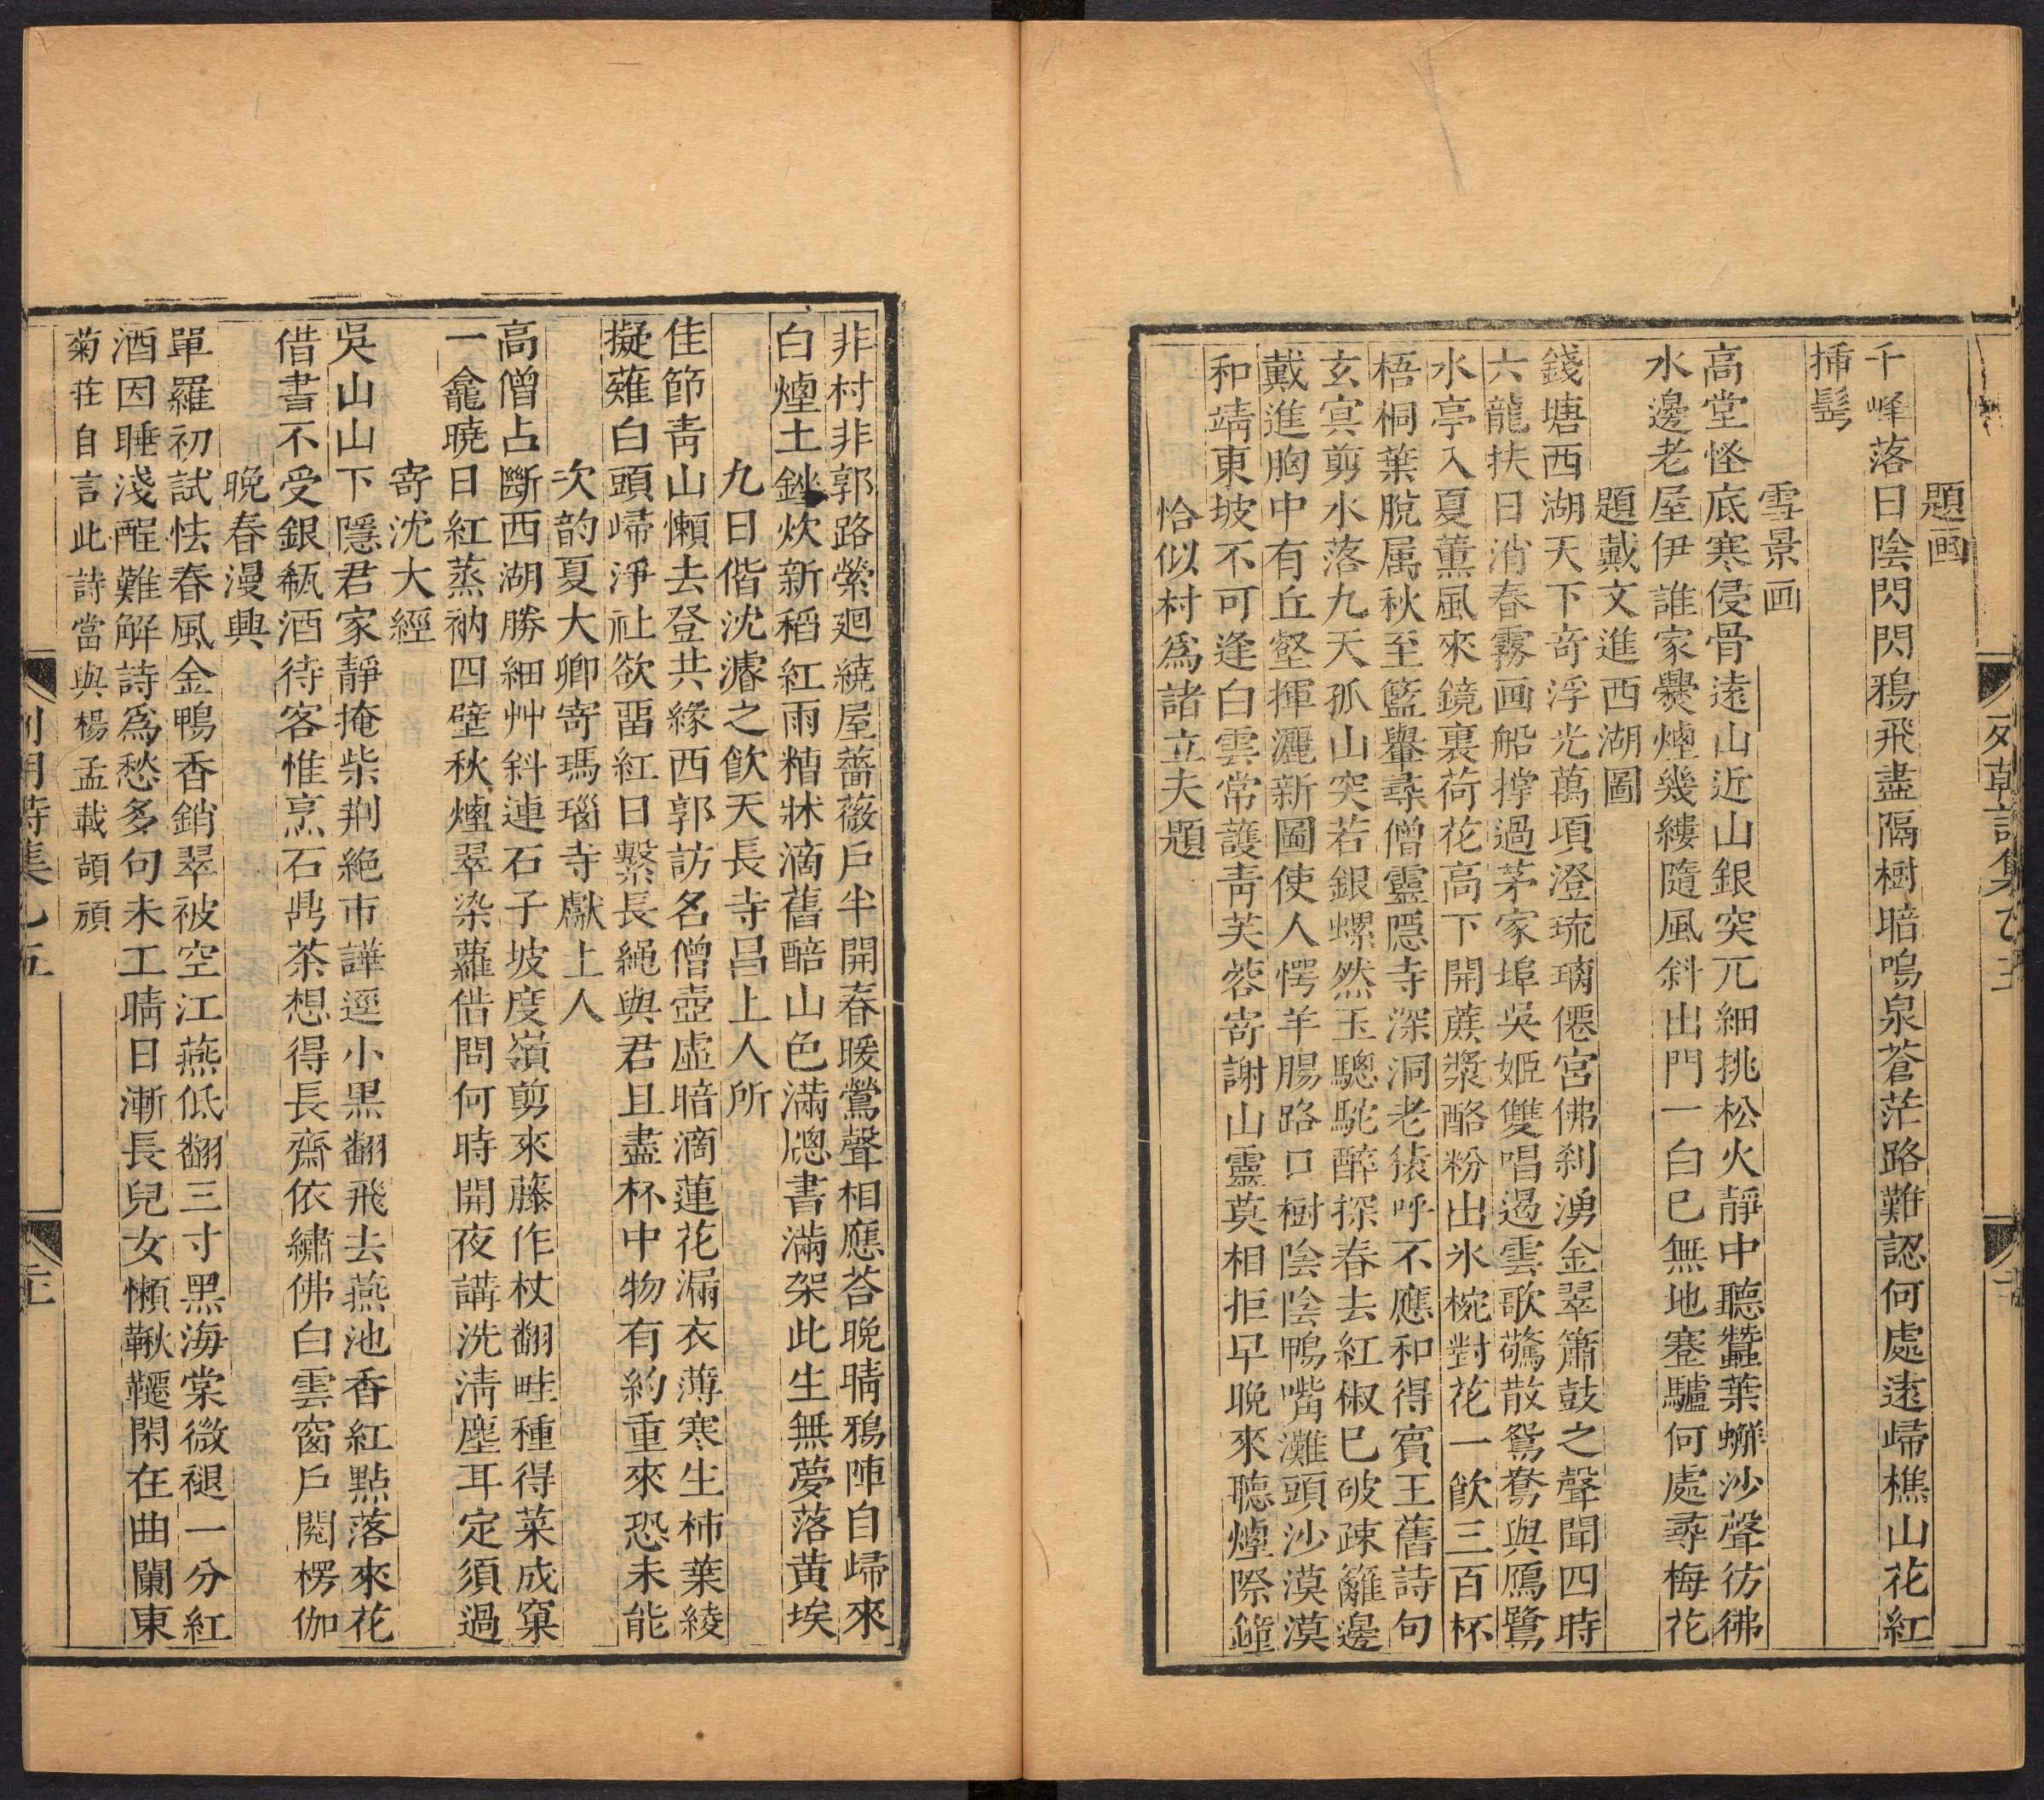 題画
千峰落日陰閃閃鴉飛盡隔樹暗鳴泉蒼茫路難認何處遠歸樵山花紅
揷髩
雪景画
高堂怪底寒侵骨遠山近山銀突兀細挑松火靜中聽蠶葉蠏沙聲彷彿
水邊老屋伊誰家爨煙幾縷隨風斜出門一白已無地蹇驢何處尋梅花
題戴文進西湖圖
錢塘西湖天下奇浮光萬項澄琉璃僊宮佛刹湧金翠簫鼓之聲聞四時
六龍扶日消春霧画船撑過茅家埠吳姬雙唱遏雲歌驚散鴛鴦與鴈鷺
水亭入夏薰風來鏡裏荷花高下開蔗漿酪粉出氷椀對花一飲三百杯
梧桐葉脫屬秋至籃轝尋僧靈隱寺深洞老猿呼不應和得賓王舊詩句
玄冥剪水落九天孤山突若銀螺然玉驄駝醉探春去紅椒已破疎籬邊
戴進胸中有丘壑揮灑新圖使人愕羊腸路口樹陰陰鴨嘴灘頭沙漠漠
和靖東坡不可逢白雲常護靑芙蓉寄謝山靈莫相拒早晚來聽煙際鐘
恰似村爲諸立夫題
非村非郭路縈廻繞屋薔薇戶半開春暖鶯聲相應荅晚晴鴉陣自歸來
白煙土銼炊新稻紅雨糟牀滴舊醅山色滿牕書滿架此生無夢落黃埃
九日偕沈濬之飮天長寺昌上人所
佳節靑山懶去登共緣西郭訪名僧壺虛暗滴蓮花漏衣薄寒生柿葉綾
擬薙白頭歸淨社欲畱紅日繫長繩與君且盡杯中物有約重來恐未能
次韵夏大卿寄瑪瑙寺獻上人
高僧占斷西湖勝細艸斜連石子坡度嶺剪來藤作杖翻畦種得菜成窠
一龕曉日紅蒸衲四壁秋煙翠染蘿借問何時開夜講洗淸塵耳定須過
寄沈大經
吳山山下隱君家靜掩柴荆絶市譁逕小黑翻飛去燕池香紅點落來花
借書不受銀瓻酒待客惟烹石鼎茶想得長齋依繡佛白雲窗戶閱楞伽
晚春漫興
單羅初試怯春風金鴨香銷翠被空江燕低翻三寸黑海棠微褪一分紅
酒因睡淺酲難解詩爲愁多句未工晴日漸長兒女懶鞦韆閑在曲闌東
菊莊自言此詩當與楊孟載頡頏